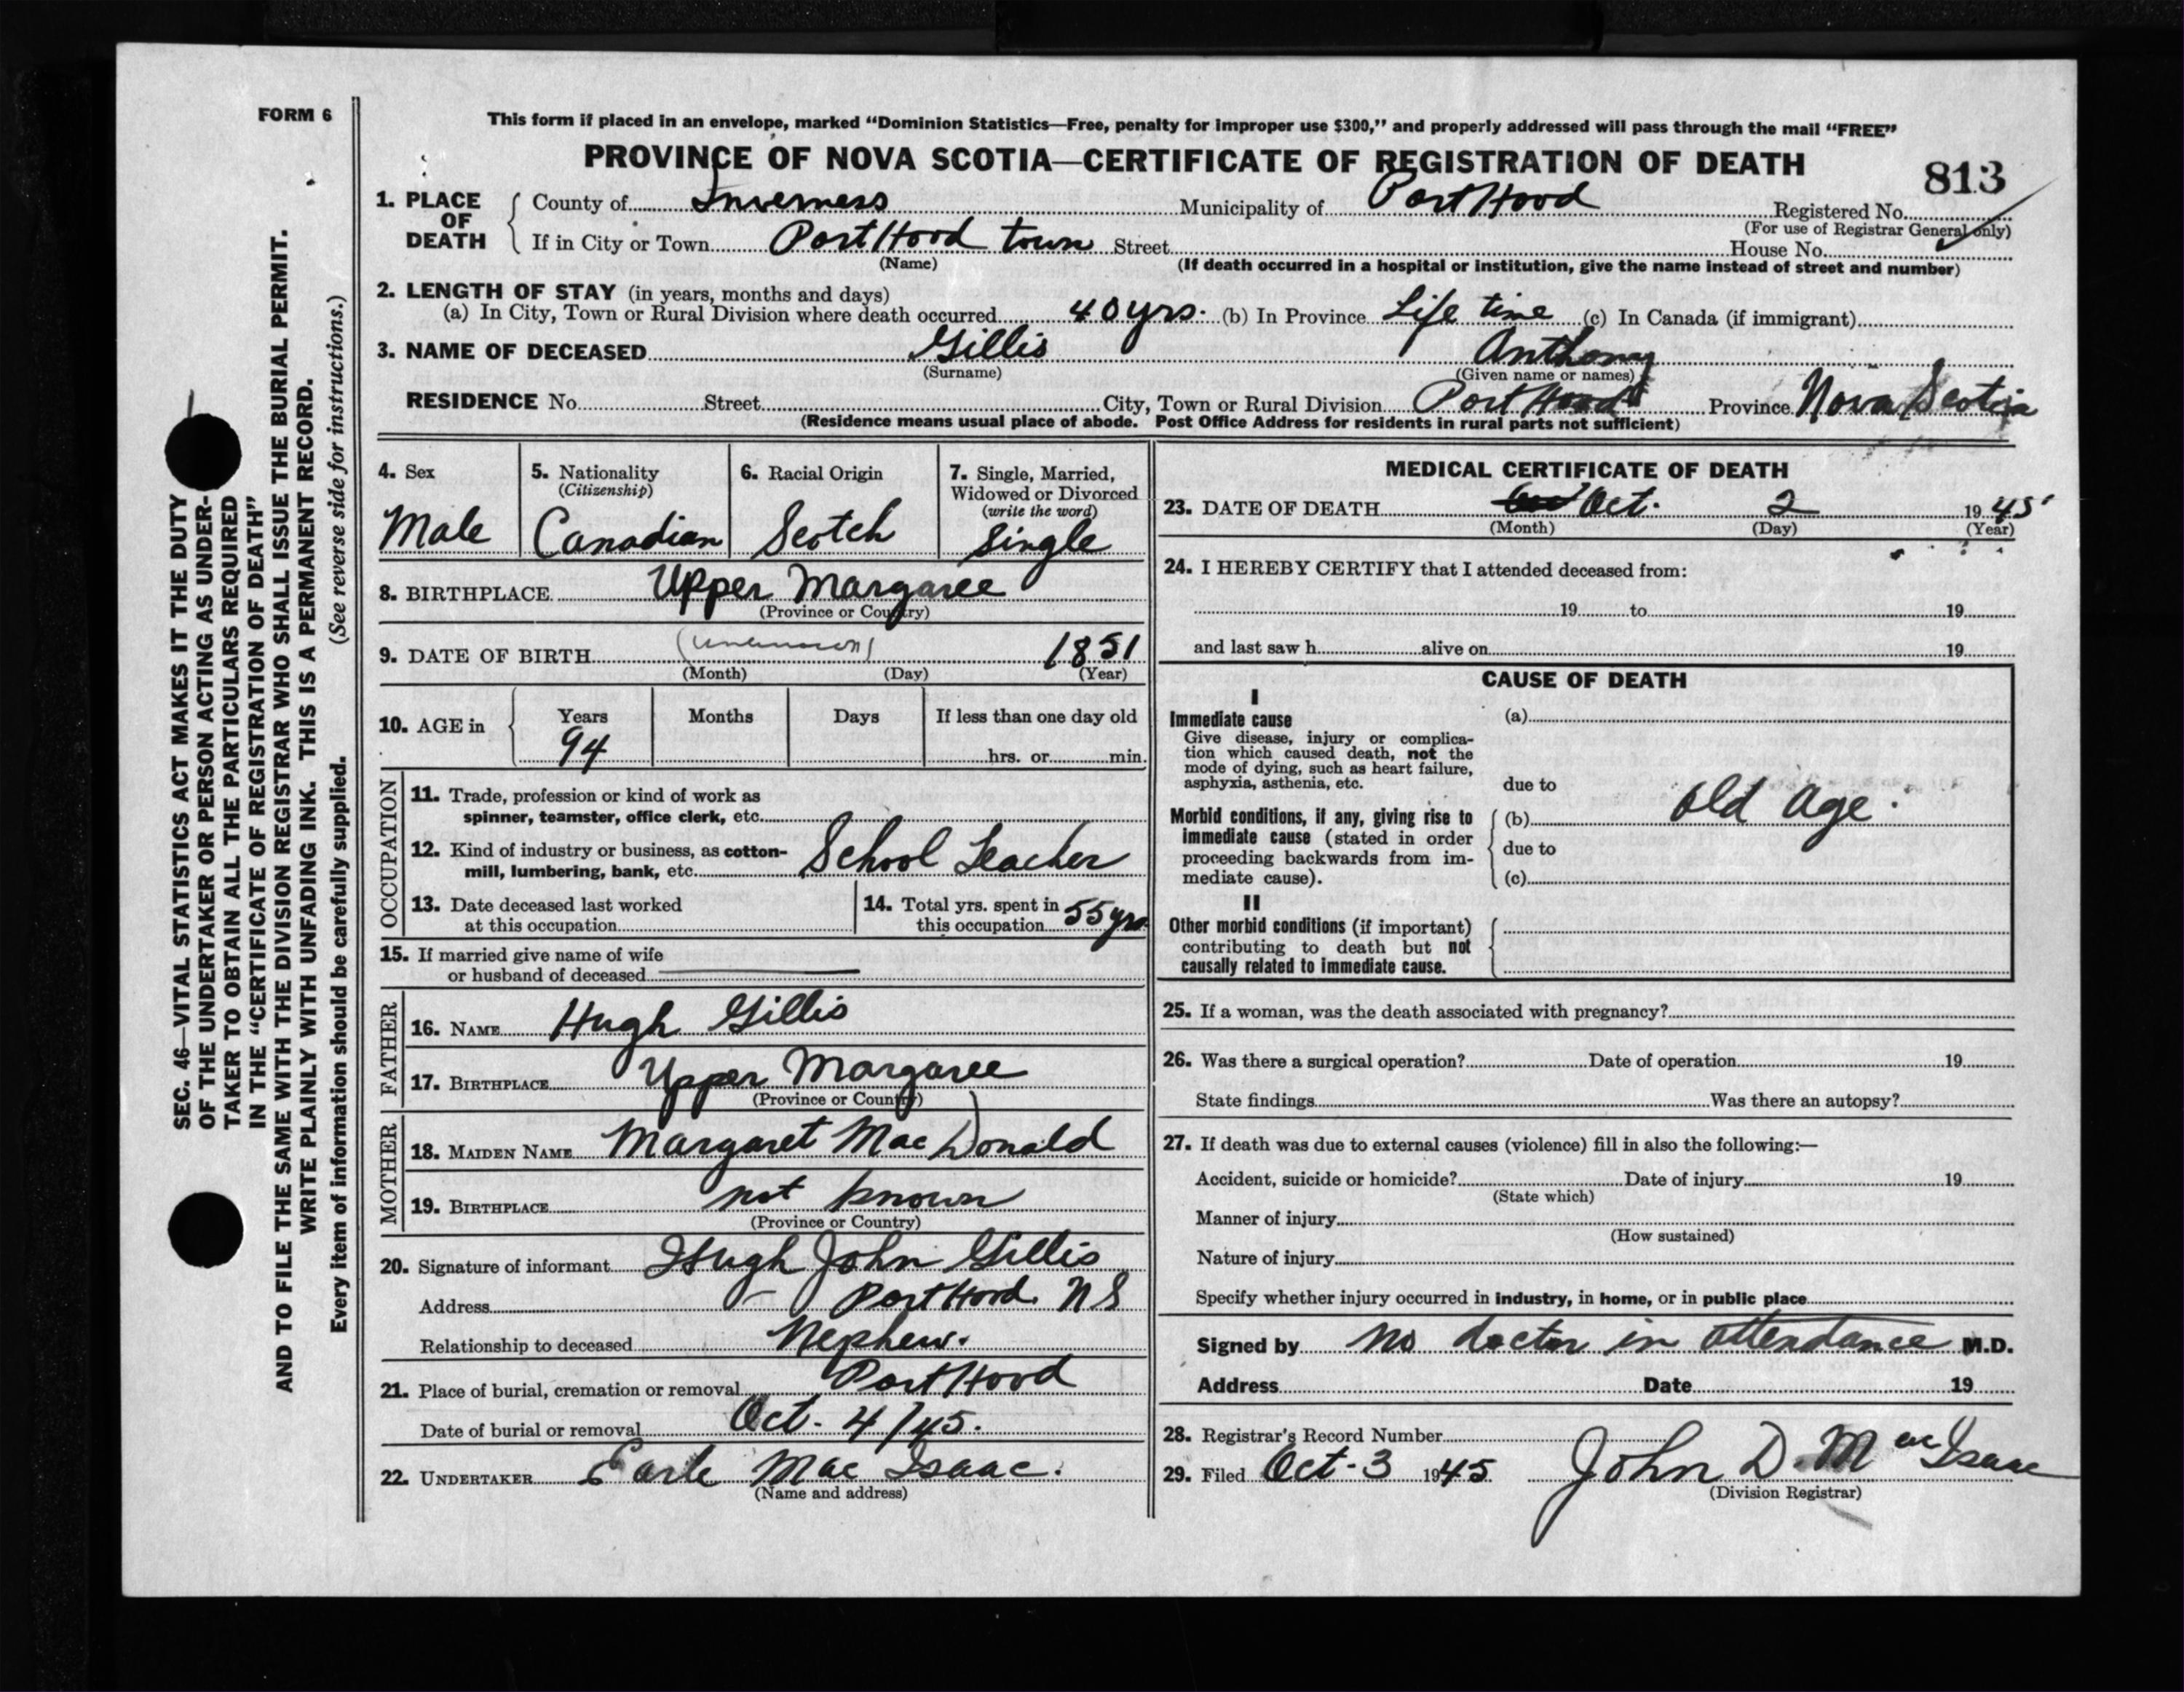 FORM 6
This form if placed in an envelope, marked “Dominion Statistics—Free, penalty for improper use $300,” and properly addressed will pass through the mail “FREE”
PROVINCE OF NOVA SCOTIA—CERTIFICATE OF REGISTRATION OF DEATH
813
1. PLACE OF DEATH
County of Inverness Municipality of Port Hood Registered No.
(For use of Registrar General only)
If in City or Town Port Hood town Street House No.
(Name)
(If death occurred in a hospital or institution, give the name instead of street and number)
2. LENGTH OF STAY (in years, months and days)
(a) In City, Town or Rural Division where death occurred 40 yrs. (b) In Province Life time (c) In Canada (if immigrant)
3. NAME OF DECEASED Gillis Anthony
(Surname) (Given name or names)
RESIDENCE No. Street City, Town or Rural Division Port Hood Province Nova Scotia
(Residence means usual place of abode. Post Office Address for residents in rural parts not sufficient)
4. Sex
Male
5. Nationality
(Citizenship)
Canadian
6. Racial Origin
Scotch
7. Single, Married,
Widowed or Divorced
(write the word)
Single
8. BIRTHPLACE Upper Margaree
(Province or Country)
9. DATE OF BIRTH (unknown) 1851
(Month) (Day) (Year)
10. AGE in
Years Months Days If less than one day old
94 hrs. or min.
OCCUPATION
11. Trade, profession or kind of work as
spinner, teamster, office clerk, etc.
12. Kind of industry or business, as cotton-
mill, lumbering, bank, etc. School Teacher
13. Date deceased last worked
at this occupation
14. Total yrs. spent in
this occupation 55 yrs
15. If married give name of wife
or husband of deceased
FATHER
16. NAME Hugh Gillis
17. BIRTHPLACE Upper Margaree
(Province or Country)
MOTHER
18. MAIDEN NAME Margaret Mac Donald
19. BIRTHPLACE not known
(Province or Country)
20. Signature of informant Hugh John Gillis
Address Port Hood. N S
Relationship to deceased Nephew.
21. Place of burial, cremation or removal Port Hood
Date of burial or removal Oct. 4/45.
22. UNDERTAKER Earle Mac Isaac.
(Name and address)
MEDICAL CERTIFICATE OF DEATH
23. DATE OF DEATH Oct. 2 1945
(Month) (Day) (Year)
24. I HEREBY CERTIFY that I attended deceased from:
19 to 19
and last saw h alive on 19
CAUSE OF DEATH
I
Immediate cause
Give disease, injury or complica-
tion which caused death, not the
mode of dying, such as heart failure,
asphyxia, asthenia, etc.
(a)
due to
Morbid conditions, if any, giving rise to
immediate cause (stated in order
proceeding backwards from im-
mediate cause).
(b) Old Age.
due to
(c)
II
Other morbid conditions (if important)
contributing to death but not
causally related to immediate cause.
25. If a woman, was the death associated with pregnancy?
26. Was there a surgical operation? Date of operation 19
State findings Was there an autopsy?
27. If death was due to external causes (violence) fill in also the following:—
Accident, suicide or homicide? Date of injury 19
(State which)
Manner of injury
(How sustained)
Nature of injury
Specify whether injury occurred in industry, in home, or in public place
Signed by no doctor in attendance M.D.
Address Date 19
28. Registrar's Record Number
29. Filed Oct. 3 1945 John D. Mac Isaac
(Division Registrar)
SEC. 46—VITAL STATISTICS ACT MAKES IT THE DUTY
OF THE UNDERTAKER OR PERSON ACTING AS UNDER-
TAKER TO OBTAIN ALL THE PARTICULARS REQUIRED
IN THE “CERTIFICATE OF REGISTRATION OF DEATH”
AND TO FILE THE SAME WITH THE DIVISION REGISTRAR WHO SHALL ISSUE THE BURIAL PERMIT.
WRITE PLAINLY WITH UNFADING INK. THIS IS A PERMANENT RECORD.
Every item of information should be carefully supplied. (See reverse side for instructions.)